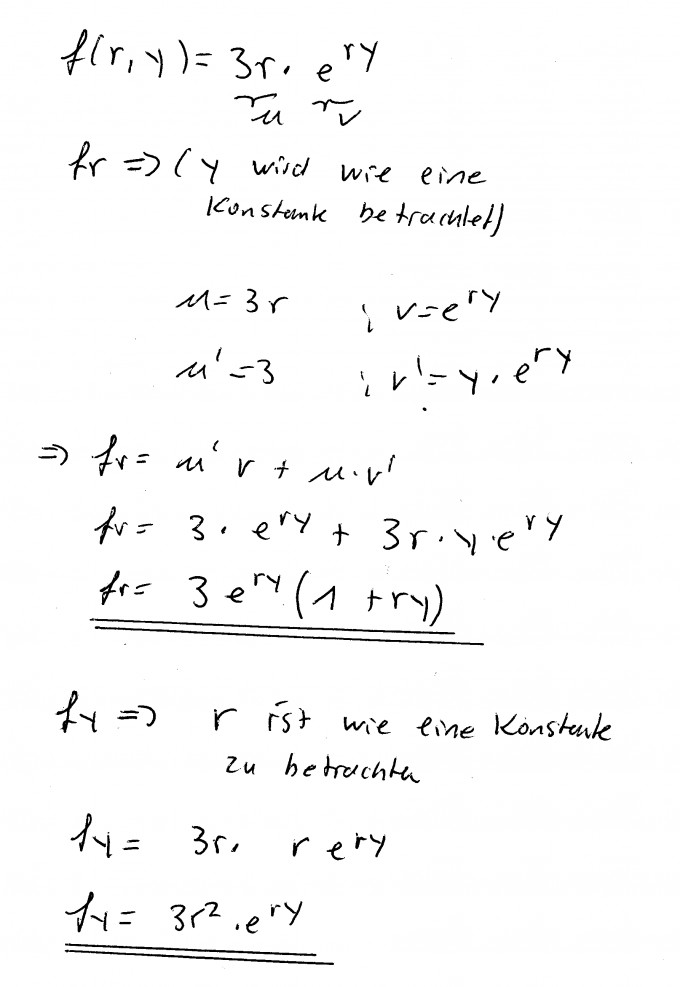 f(r,y)= 3r · e^{ry}
u v
fr => (y wird wie eine
Konstante betrachtet)
u = 3r ; v = e^{ry}
u' = 3 ; v' = y · e^{ry}
=> fr = u' v + u · v'
fr = 3 · e^{ry} + 3r · y · e^{ry}
fr = 3 e^{ry} (1 + ry)
fy => r ist wie eine Konstante
zu betrachten
fy = 3r · r e^{ry}
fy = 3r² · e^{ry}